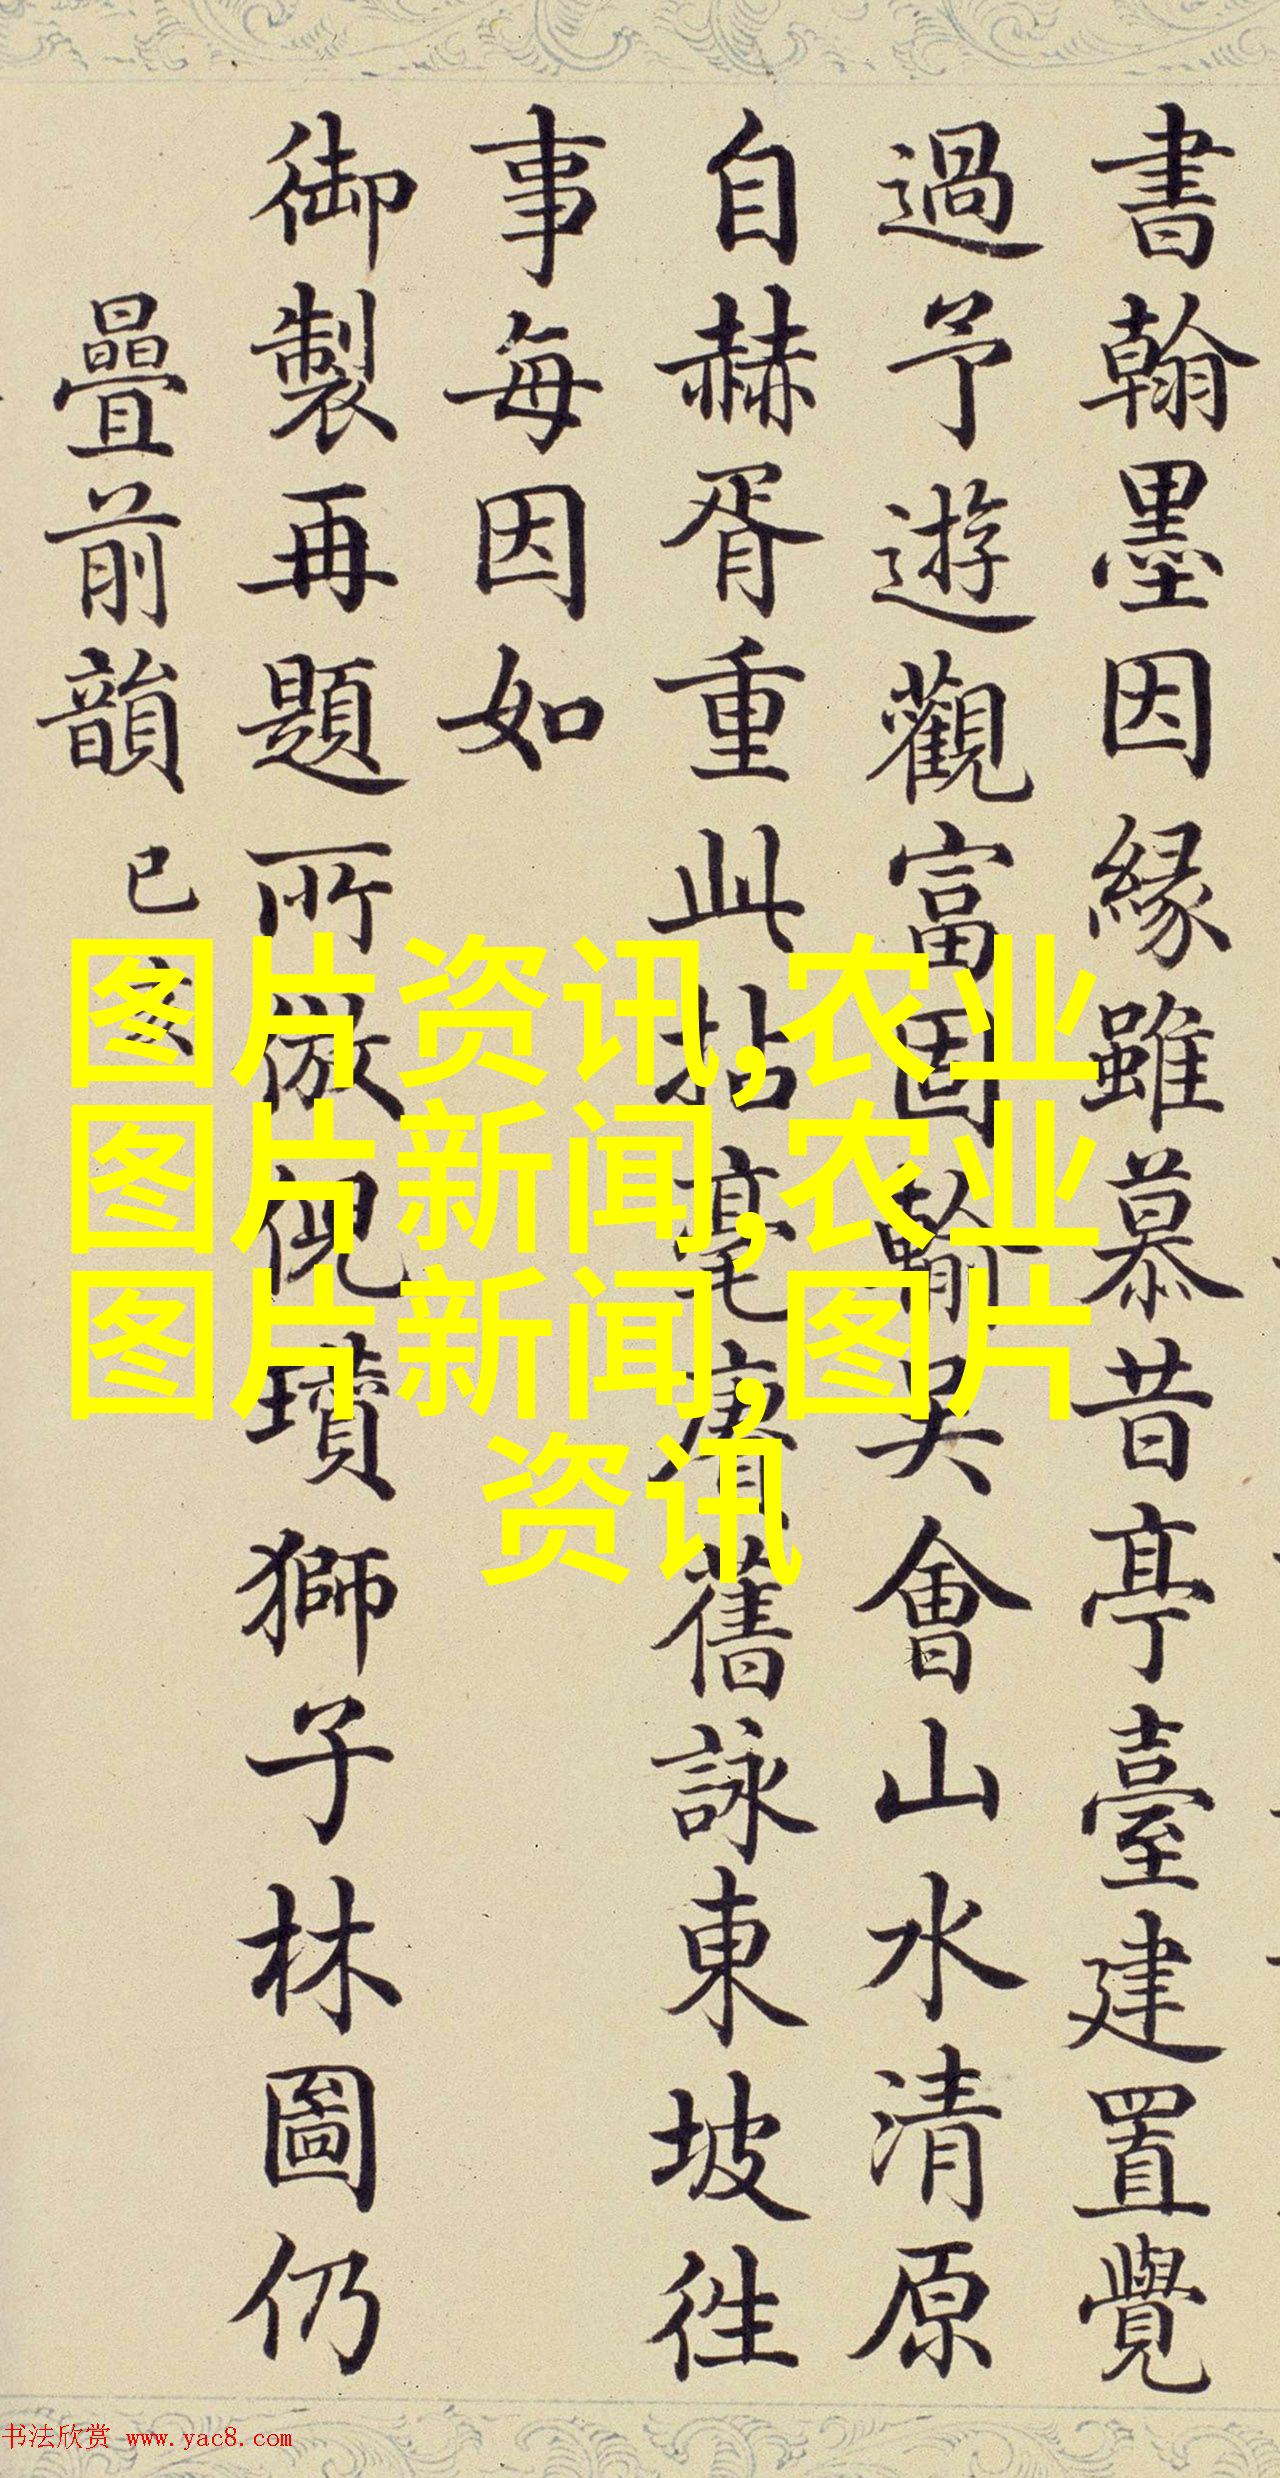 書翰墨因緣雖慕昔亭臺建置覺
過予遊觀富因輸吴會山水清原
自赫胥重此拈毫賡舊詠東坡徃
事每因如
御製再題所倣倪瓚獅子林圖仍
疊前韻 已亥
图片资讯,农业
图片新闻,农业
图片新闻,图片
资讯
书法欣赏 www.yac8.com